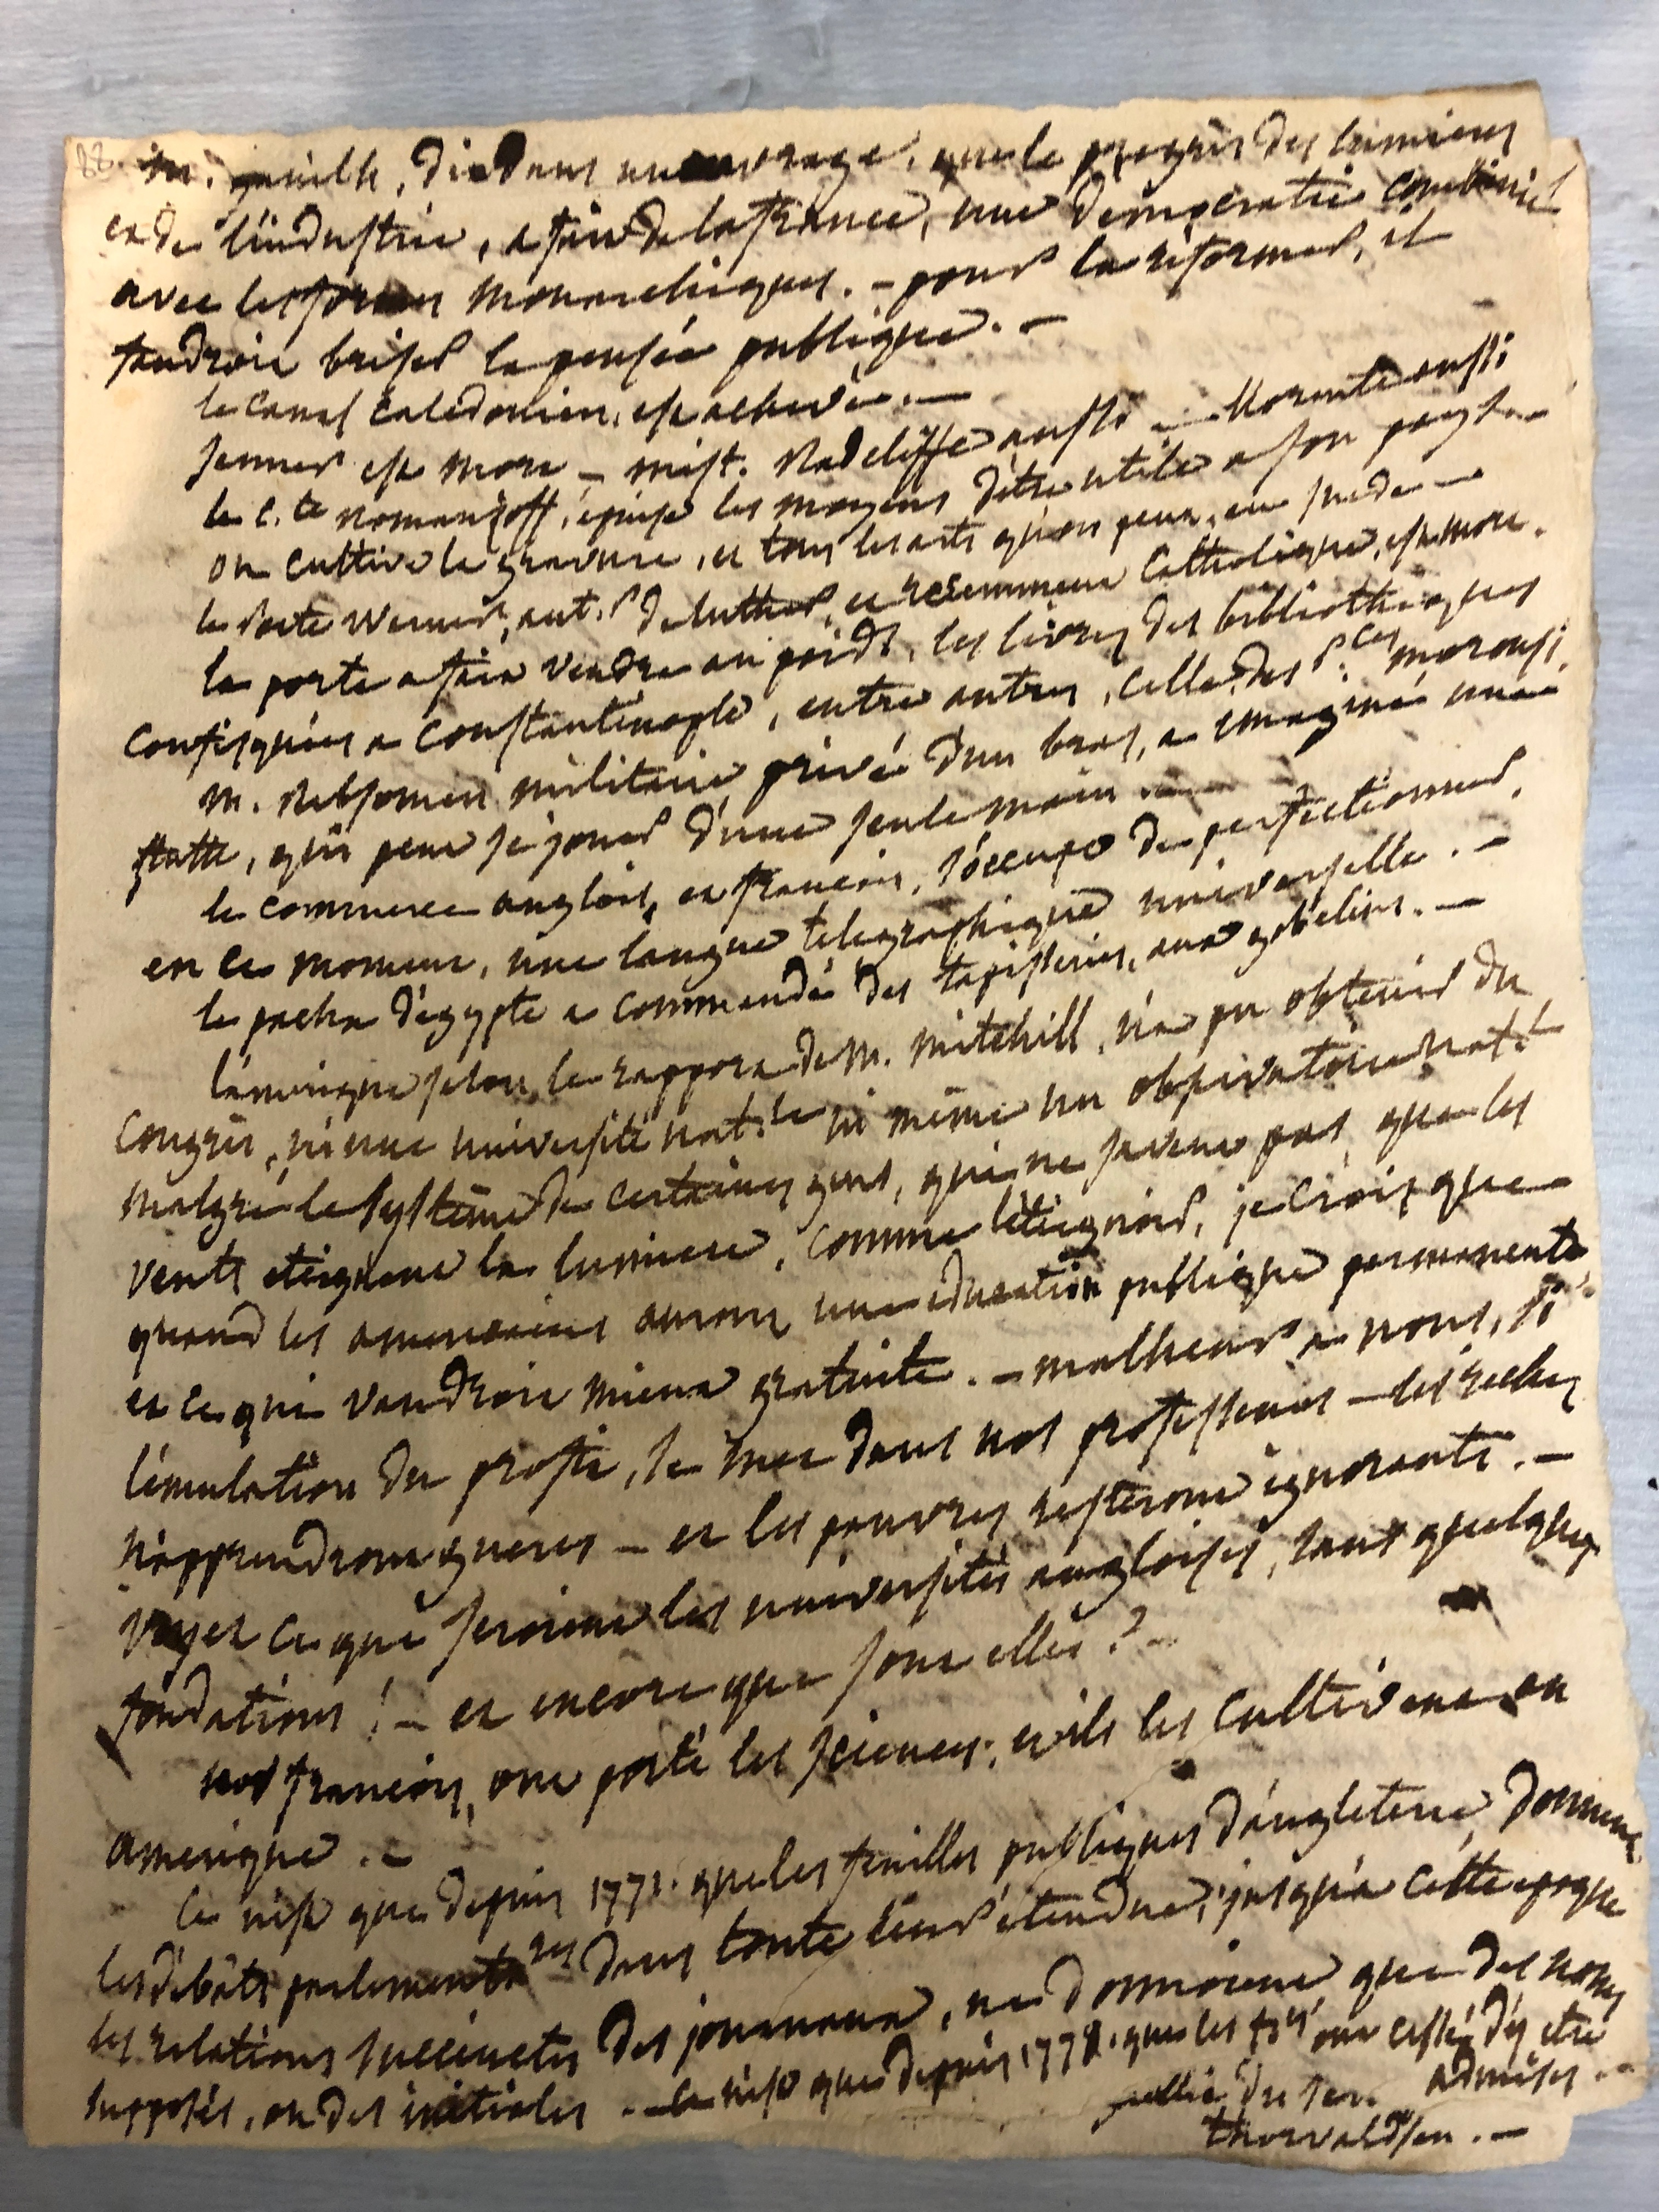 88.
m. ganilh, dit dans un ouvrage, que le progrès des lumieres
et de l'industrie, a fait de la france, une democratie combinée
avec les formes monarchiques. - pour la reformer, il
faudroit briser la pensée publique. -
le canal caledonien, est achevé. -
Jenner est mort - mist. Radcliffe aussi - aussi
le c.te romanzoff, épuise les moyens d'être utile a son pays. -
on cultive la gravure, et tous les arts qu'on peut, en suede -
le Poete Werner, aut.r de luther, et recemment catholique, est mort.
la porte a fait vendre au poids, les livres des bibliotheques
confisquées a constantinople, entre autres, celle des P.ces morousi.
m. militaire privé d'un bras, a imaginé une
flutte, qui peut se jouer d'une seule main. -
le commerce anglois, et francois, s'occupe de perfectionner,
en ce moment, une langue telegraphique universelle. -
le pacha d'égypte a commandé des tapisseries, aux gobelins. -
l'amerique selon le rapport de m. mitchill, n'a pu obtenir du
congrès, ni une université nat.le ni même un observatoire nat.l
malgré le systême de certaines gens, qui ne savent pas, que les
vents eteignent la lumiere, comme l'éteignoir, je crois que
quand les americains auront une education publique permanente,
et ce qui vaudroit mieux gratuite. - malheur a nous, si
l'emulation du profit, se met dans nos professeurs - les riches
n'apprendront gueres - et les pauvres resteront ignorants. -
voyez ce que seroient les universités angloises, sans quelques
fondations! - et encore que sont elles? -
nos francois, ont porté les sciences, et ils les cultivent en
amerique. -
ce n'est que depuis 1771. que les feuilles publiques d'angleterre, donnent
les débats parlementaires dans toute leur étendue, jusqu'a cette epoque
les relations succinctes des journaux, ne donnoient que des noms
supposés, ou des initiales. - ce n'est que depuis 1778. que les ont cessé d'y etre
admises. -
thorvaldsen. -